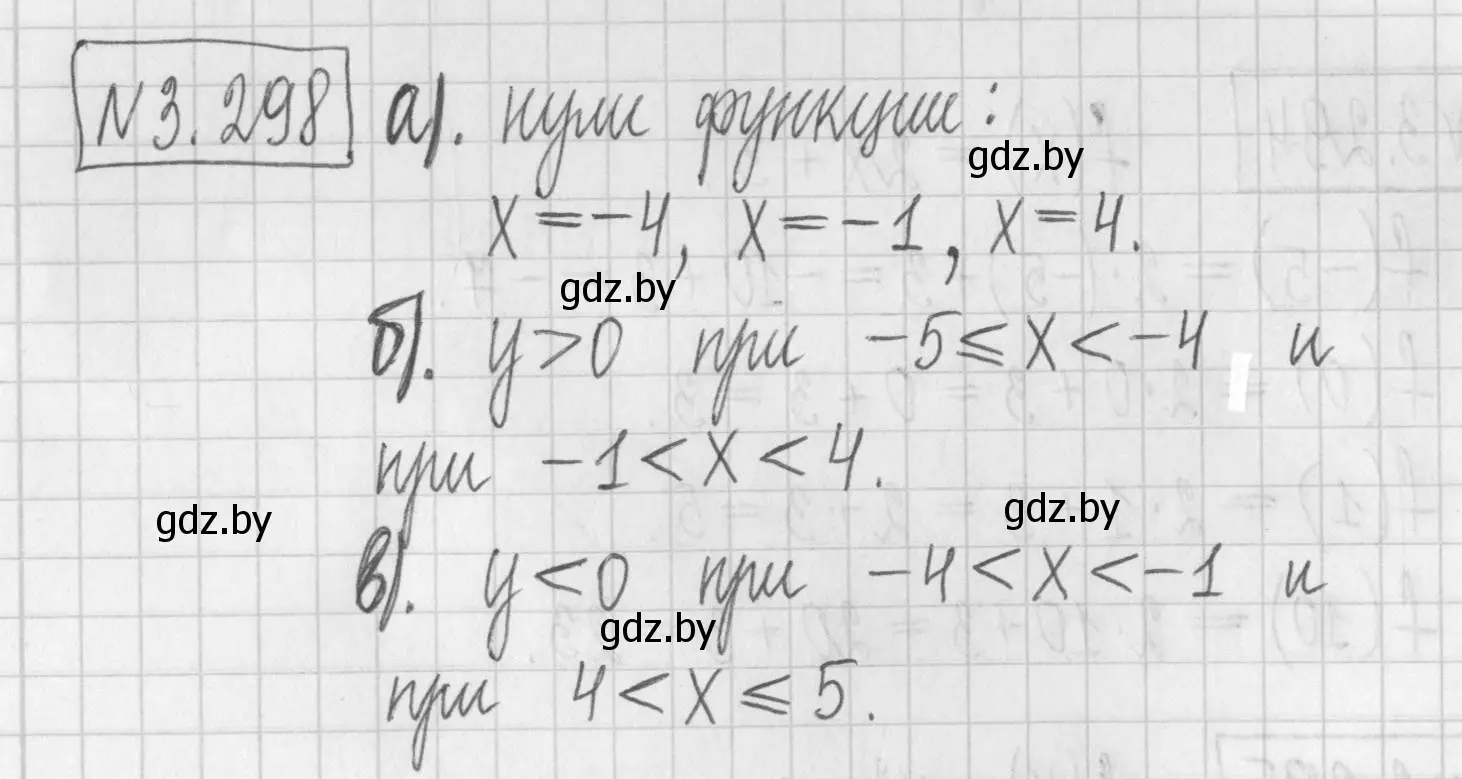 N3.298 а). нули функции:
gdz.by
x = -4, x = -1, x = 4.
gdz.by
б). y > 0 при -5 ≤ x < -4 и
при -1 < x < 4.
gdz.by
gdz.by
в). y < 0 при -4 < x < -1 и
gdz.by
при 4 < x ≤ 5.